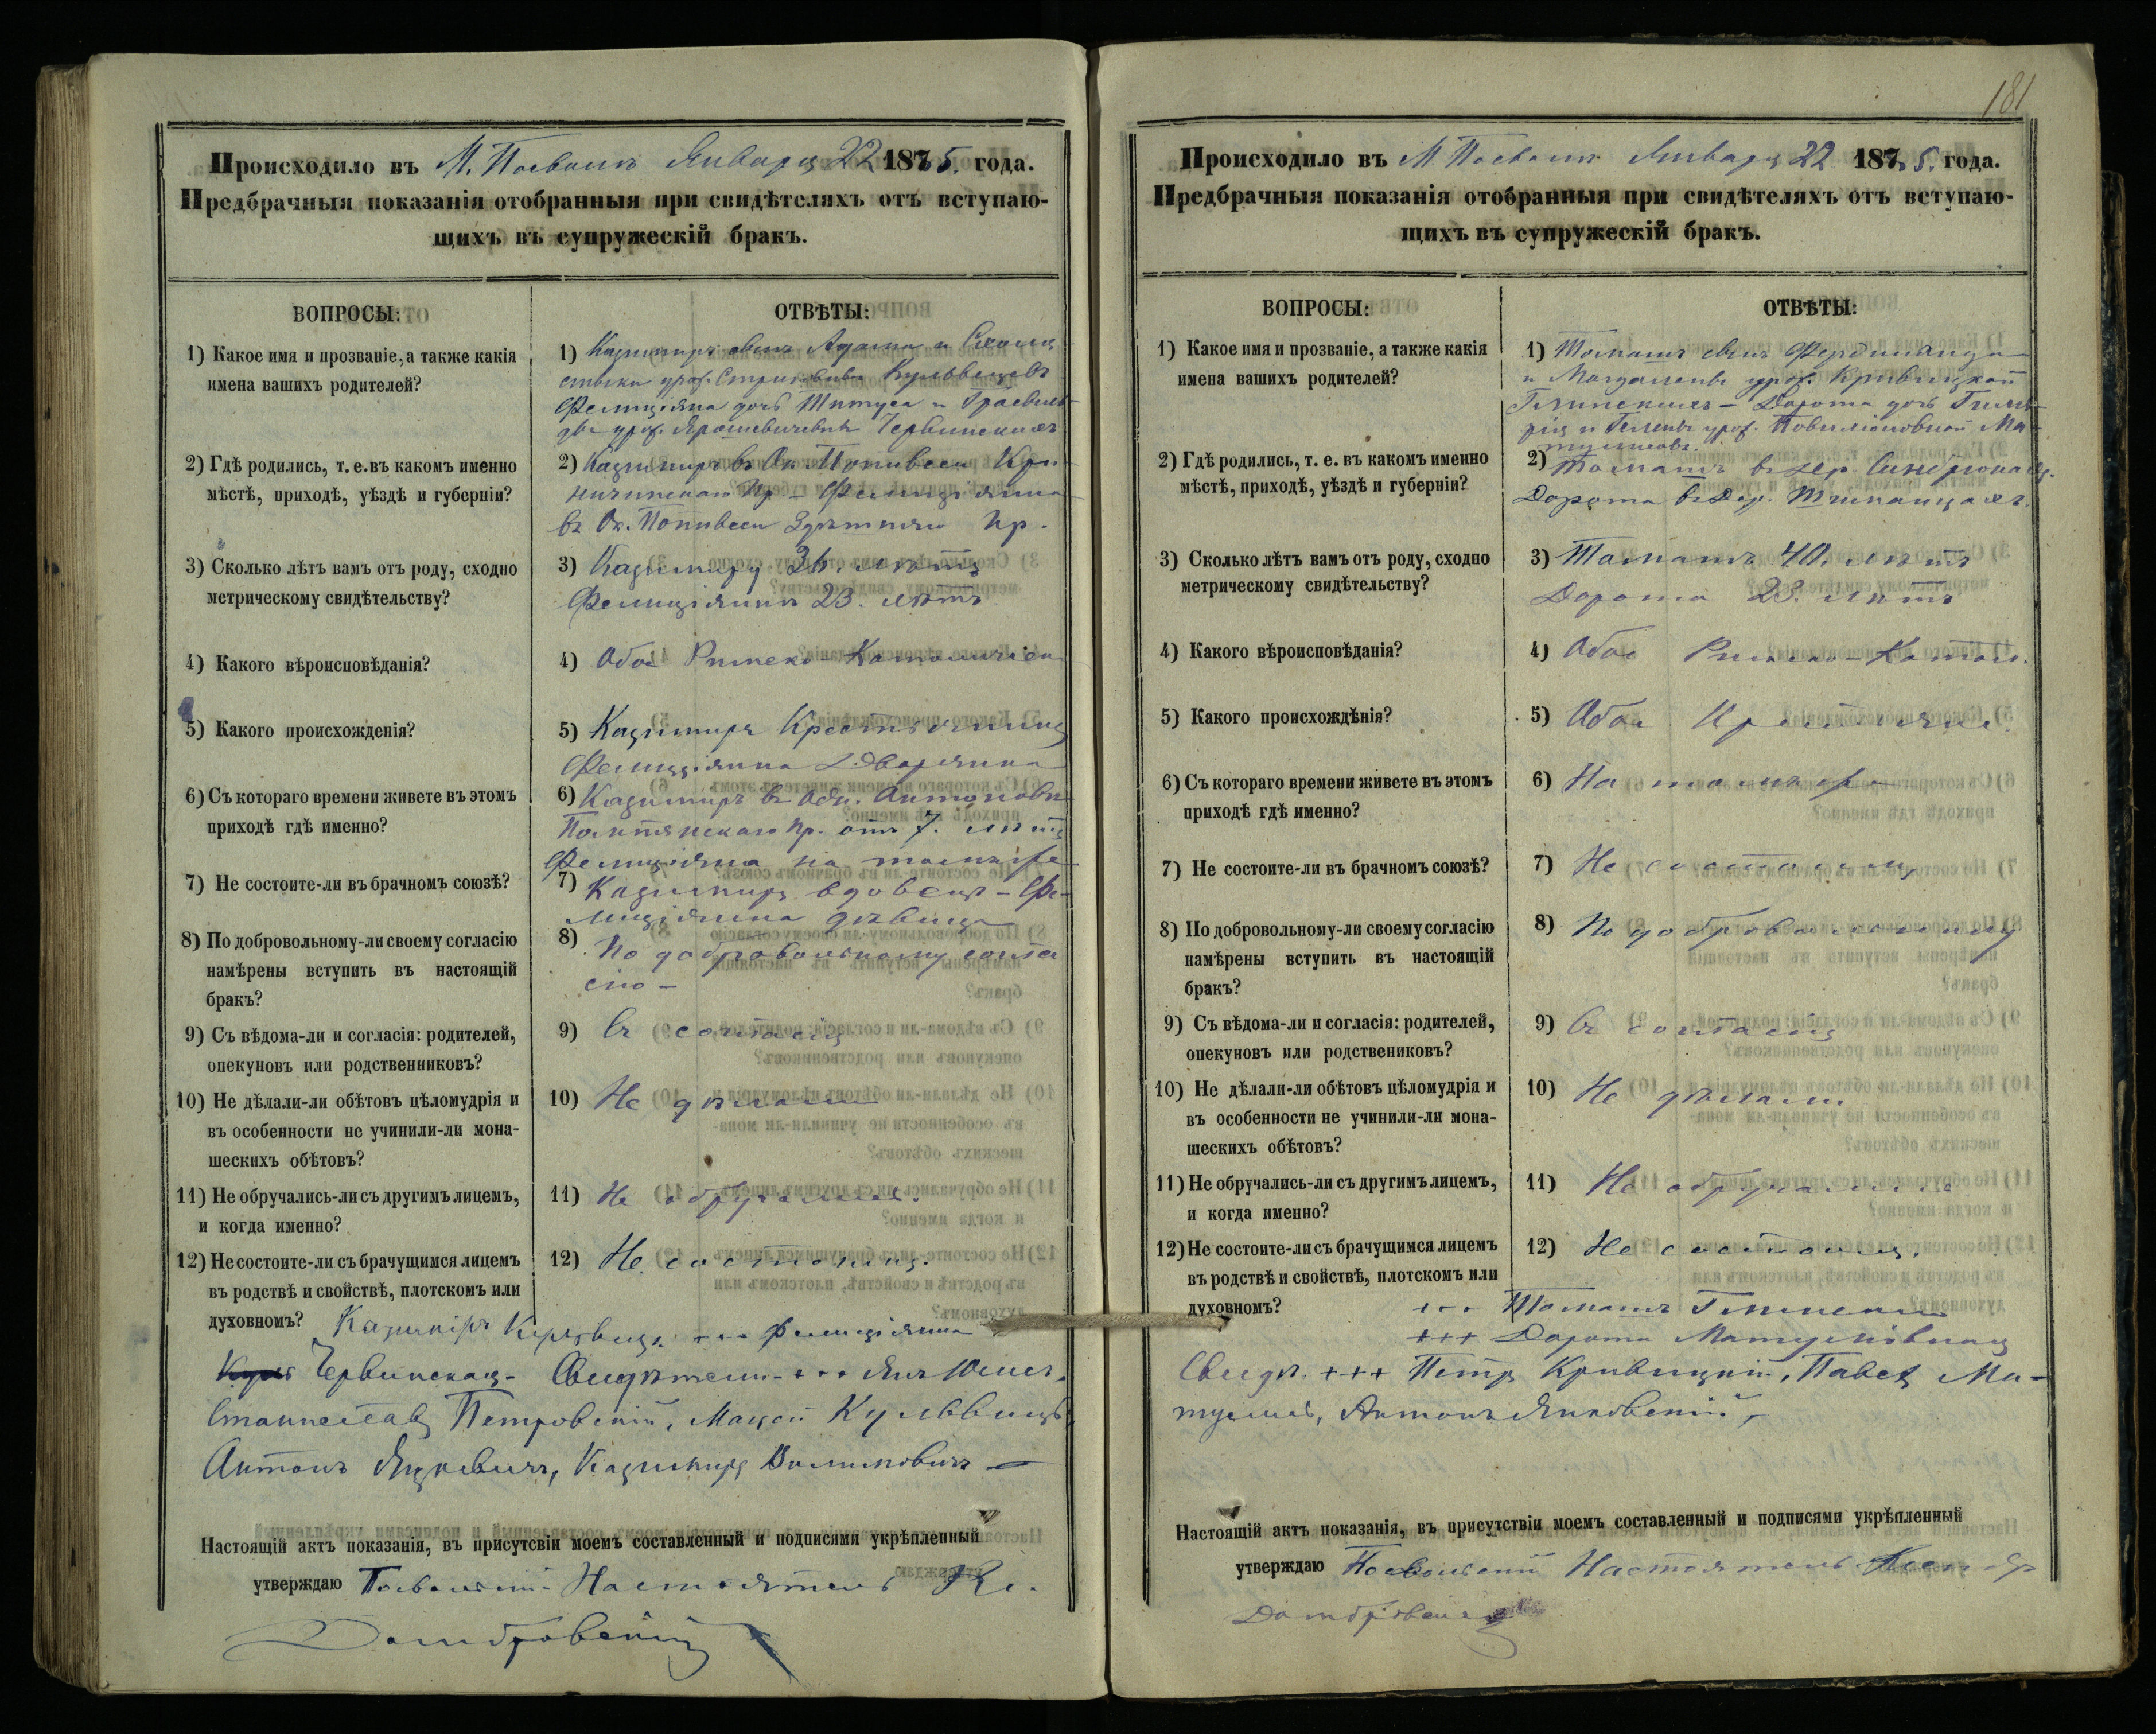 Происходило въ М. Посволь Января 22 1875. года.
Предбрачныя показанія отобранныя при свидѣтеляхъ отъ вступаю-
щихъ въ супружескій бракъ.
ВОПРОСЫ:
ОТВѢТЫ:
1) Какое имя и прозваніе, а также какія
имена вашихъ родителей?
1) Казимиръ сынъ Адама и
урож. Кульвецъ
Фелиціянна дочь Титуса и
урож. Ярошевичевны Червинскихъ
2) Гдѣ родились, т. е. въ какомъ именно
мѣстѣ, приходѣ, уѣздѣ и губерніи?
2) Казимиръ въ Ок. Попивеси Кри-
ничинскаго пр. – Фелиціянна
въ Ок. Попивеси пр.
3) Сколько лѣтъ вамъ отъ роду, сходно
метрическому свидѣтельству?
3) Казимиру 36. лѣтъ
Фелиціянна 23. лѣтъ
4) Какого вѣроисповѣданія?
4) Обое Римско-Католическ
5) Какого происхожденія?
5) Казимиръ Крестьянинъ
Фелиціянна Дворянка
6) Съ котораго времени живете въ этомъ
приходѣ гдѣ именно?
6) Казимиръ въ Антонов
пр. отъ 7. лѣтъ
Фелиціянна на томъ же
7) Не состоите-ли въ брачномъ союзѣ?
7) Казимиръ вдовецъ – Фе-
лиціянна дѣвица
8) По добровольному-ли своему согласію
намѣрены вступить въ настоящій
бракъ?
8) По добровольному согла
сію –
9) Съ вѣдома-ли и согласія: родителей,
опекуновъ или родственниковъ?
9) Съ согласія
10) Не дѣлали-ли обѣтовъ цѣломудрія и
въ особенности не учинили-ли мона-
шескихъ обѣтовъ?
10) Не дѣлали
11) Не обручались-ли съ другимъ лицемъ,
и когда именно?
11) Не обручались.
12) Не состоите-ли съ брачущимся лицемъ
въ родствѣ и свойствѣ, плотскомъ или
духовномъ?
12) Не состоимъ.
Казимiръ Кульвецъ. +++ Фелиціянна
Червинская – Свидѣтели – +++ Янъ
Станиславъ Петровскій, Мацей Кульвецъ
Антонъ Яцкевичъ, Казимиръ
Настоящій актъ показанія, въ присутсвіи моемъ составленный и подписями укрѣпленный
утверждаю Посвольскій Настоятель Кс.
Домбровскій
181
Происходило въ М Посволь Января 22 1875. года.
Предбрачныя показанія отобранныя при свидѣтеляхъ отъ вступаю-
щихъ въ супружескій бракъ.
ВОПРОСЫ:
ОТВѢТЫ:
1) Какое имя и прозваніе, а также какія
имена вашихъ родителей?
1) Томашъ сынъ Фердинанда
и Магдалены урож. Кривицкой
Глинскихъ – Дорота дочь
и урож. Ма-
2) Гдѣ родились, т. е. въ какомъ именно
мѣстѣ, приходѣ, уѣздѣ и губерніи?
2) Томашъ въ дер.
Дорота въ Дер.
3) Сколько лѣтъ вамъ отъ роду, сходно
метрическому свидѣтельству?
3) Томашъ 40. лѣтъ
Дорота 23. лѣтъ
4) Какого вѣроисповѣданія?
4) Обое Римско-Катол.
5) Какого происхождѣнія?
5) Обое Крестьяне.
6) Съ котораго времени живете въ этомъ
приходѣ гдѣ именно?
6) На томъ же
7) Не состоите-ли въ брачномъ союзѣ?
7) Не состоимъ
8) По добровольному-ли своему согласію
намѣрены вступить въ настоящій
бракъ?
8) По добровольному
9) Съ вѣдома-ли и согласія: родителей,
опекуновъ или родствениковъ?
9) Съ согласія
10) Не дѣлали-ли обѣтовъ цѣломудрія и
въ особенности не учинили-ли мона-
шескихъ обѣтовъ?
10) Не дѣлали
11) Не обручались-ли съ другимъ лицемъ,
и когда именно?
11) Не обручались
12) Не состоите-ли съ брачущимся лицемъ
въ родствѣ и свойствѣ, плотскомъ или
духовномъ?
12) Не состоимъ.
+++ Томашъ Глинскій
+++ Дорота
Свидѣ. +++ Петръ Кривицкій, Павелъ Ма-
Антонъ Янковскій,
Настоящій актъ показанія, въ присутствіи моемъ составленный и подписями укрѣпленный
утверждаю Посвольскій Настоятель
Домбровскій